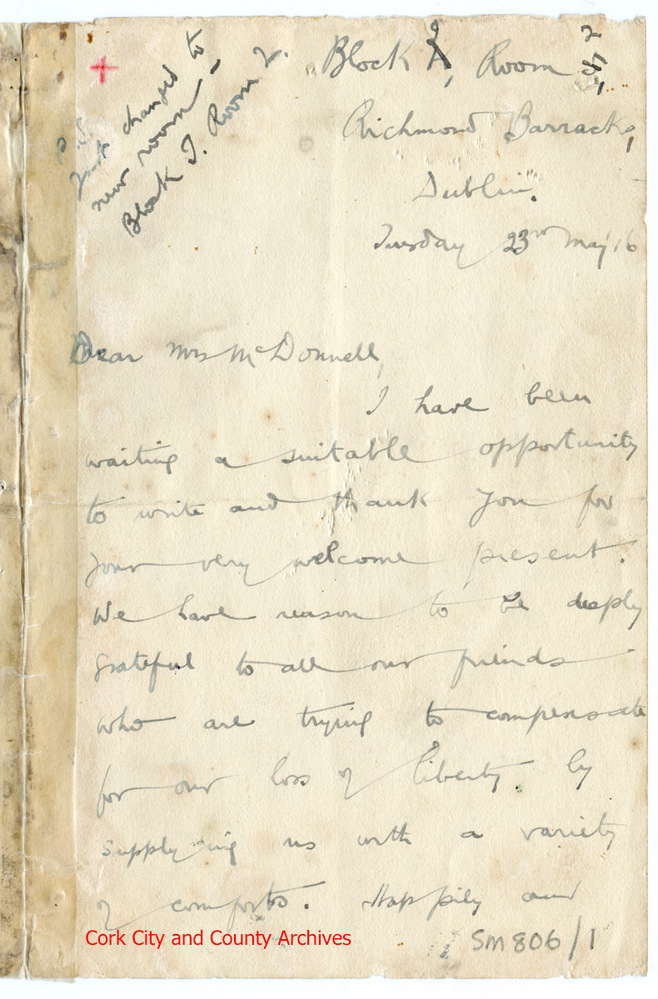 P.S.
Just changed to
new room –
Block J. Room 2.
Block, Room
Richmond Barracks,
Dublin.
Tuesday 23rd May 16
Dear Mrs McDonnell,
I have been
waiting a suitable opportunity
to write and thank you for
your very welcome present.
We have reason to be deeply
grateful to all our friends
who are trying to compensate
for our loss of liberty by
supplying us with a variety
of comforts. Happily our
Cork City and County Archives
SM806/1